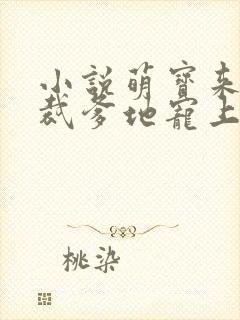 小說萌寶來
裁爹地寵上
桃染